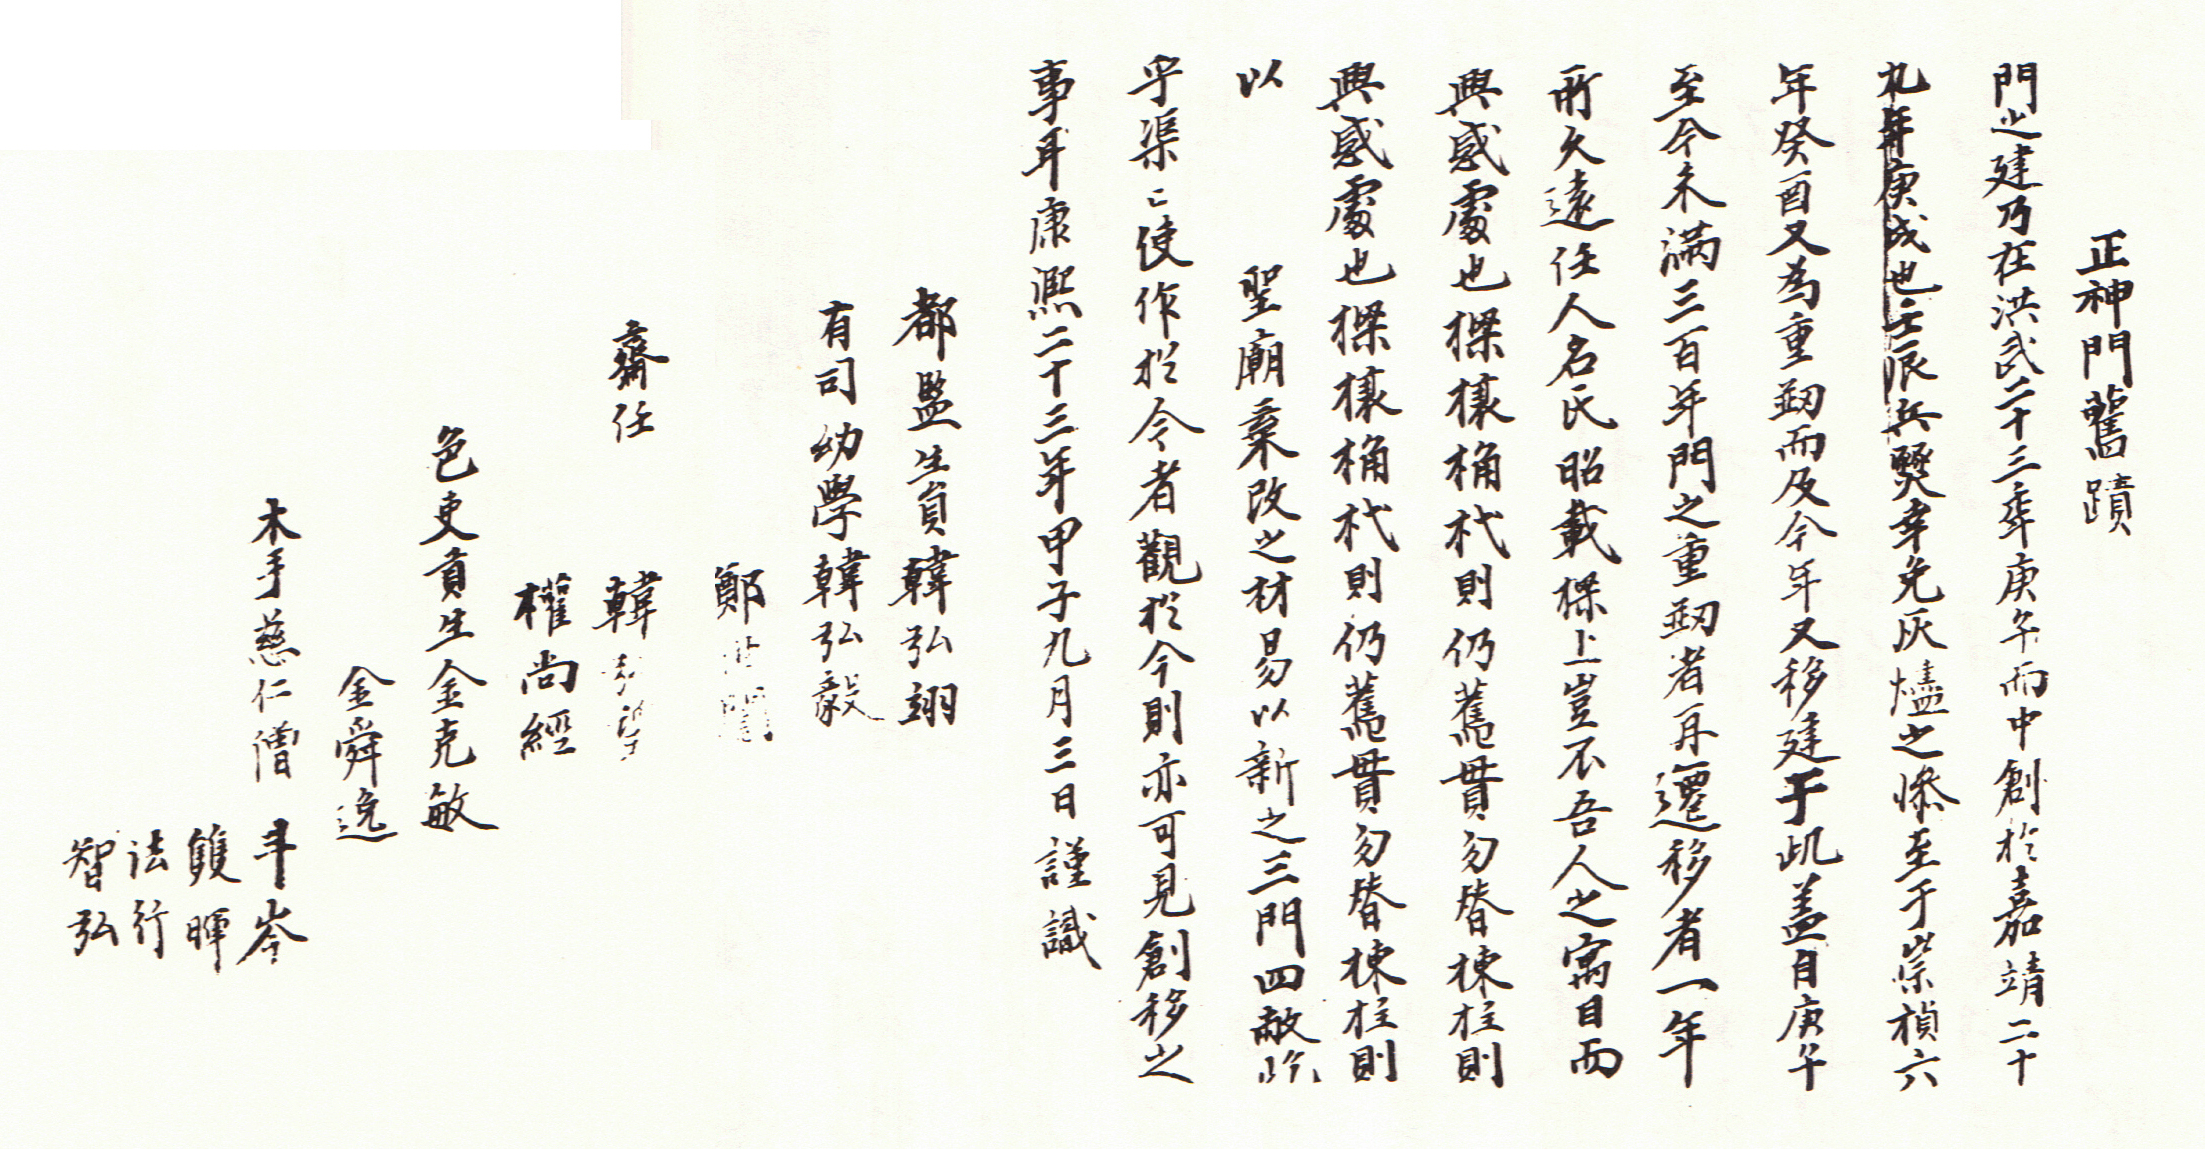 正神門舊蹟
門之建乃在洪武二十三年庚午而中創於嘉靖二十
九年庚戌也壬辰兵燹幸免灰燼之慘至于崇禎六
年癸酉又為重刱而及今年又移建于此盖自庚午
至今未滿三百年門之重刱者再遷移者一年
所久遠任人名氏昭載樑上豈不吾人之寓目而
興感處也樑樑桷杙則仍舊貫勿替棟柱則
興感處也樑樑桷杙則仍舊貫勿替棟柱則
以 聖廟棄改之材易以新之三門四敝
乎渠〻使作於今者觀於今則亦可見創移之
事耳康熙二十三年甲子九月三日謹識
都監生員韓弘翊
有司幼學韓弘毅
鄭
齋任 韓
權尚經
色吏貢生金克敏
金舜逸
木手慈仁僧 斗岑
雙暉
法行
智弘